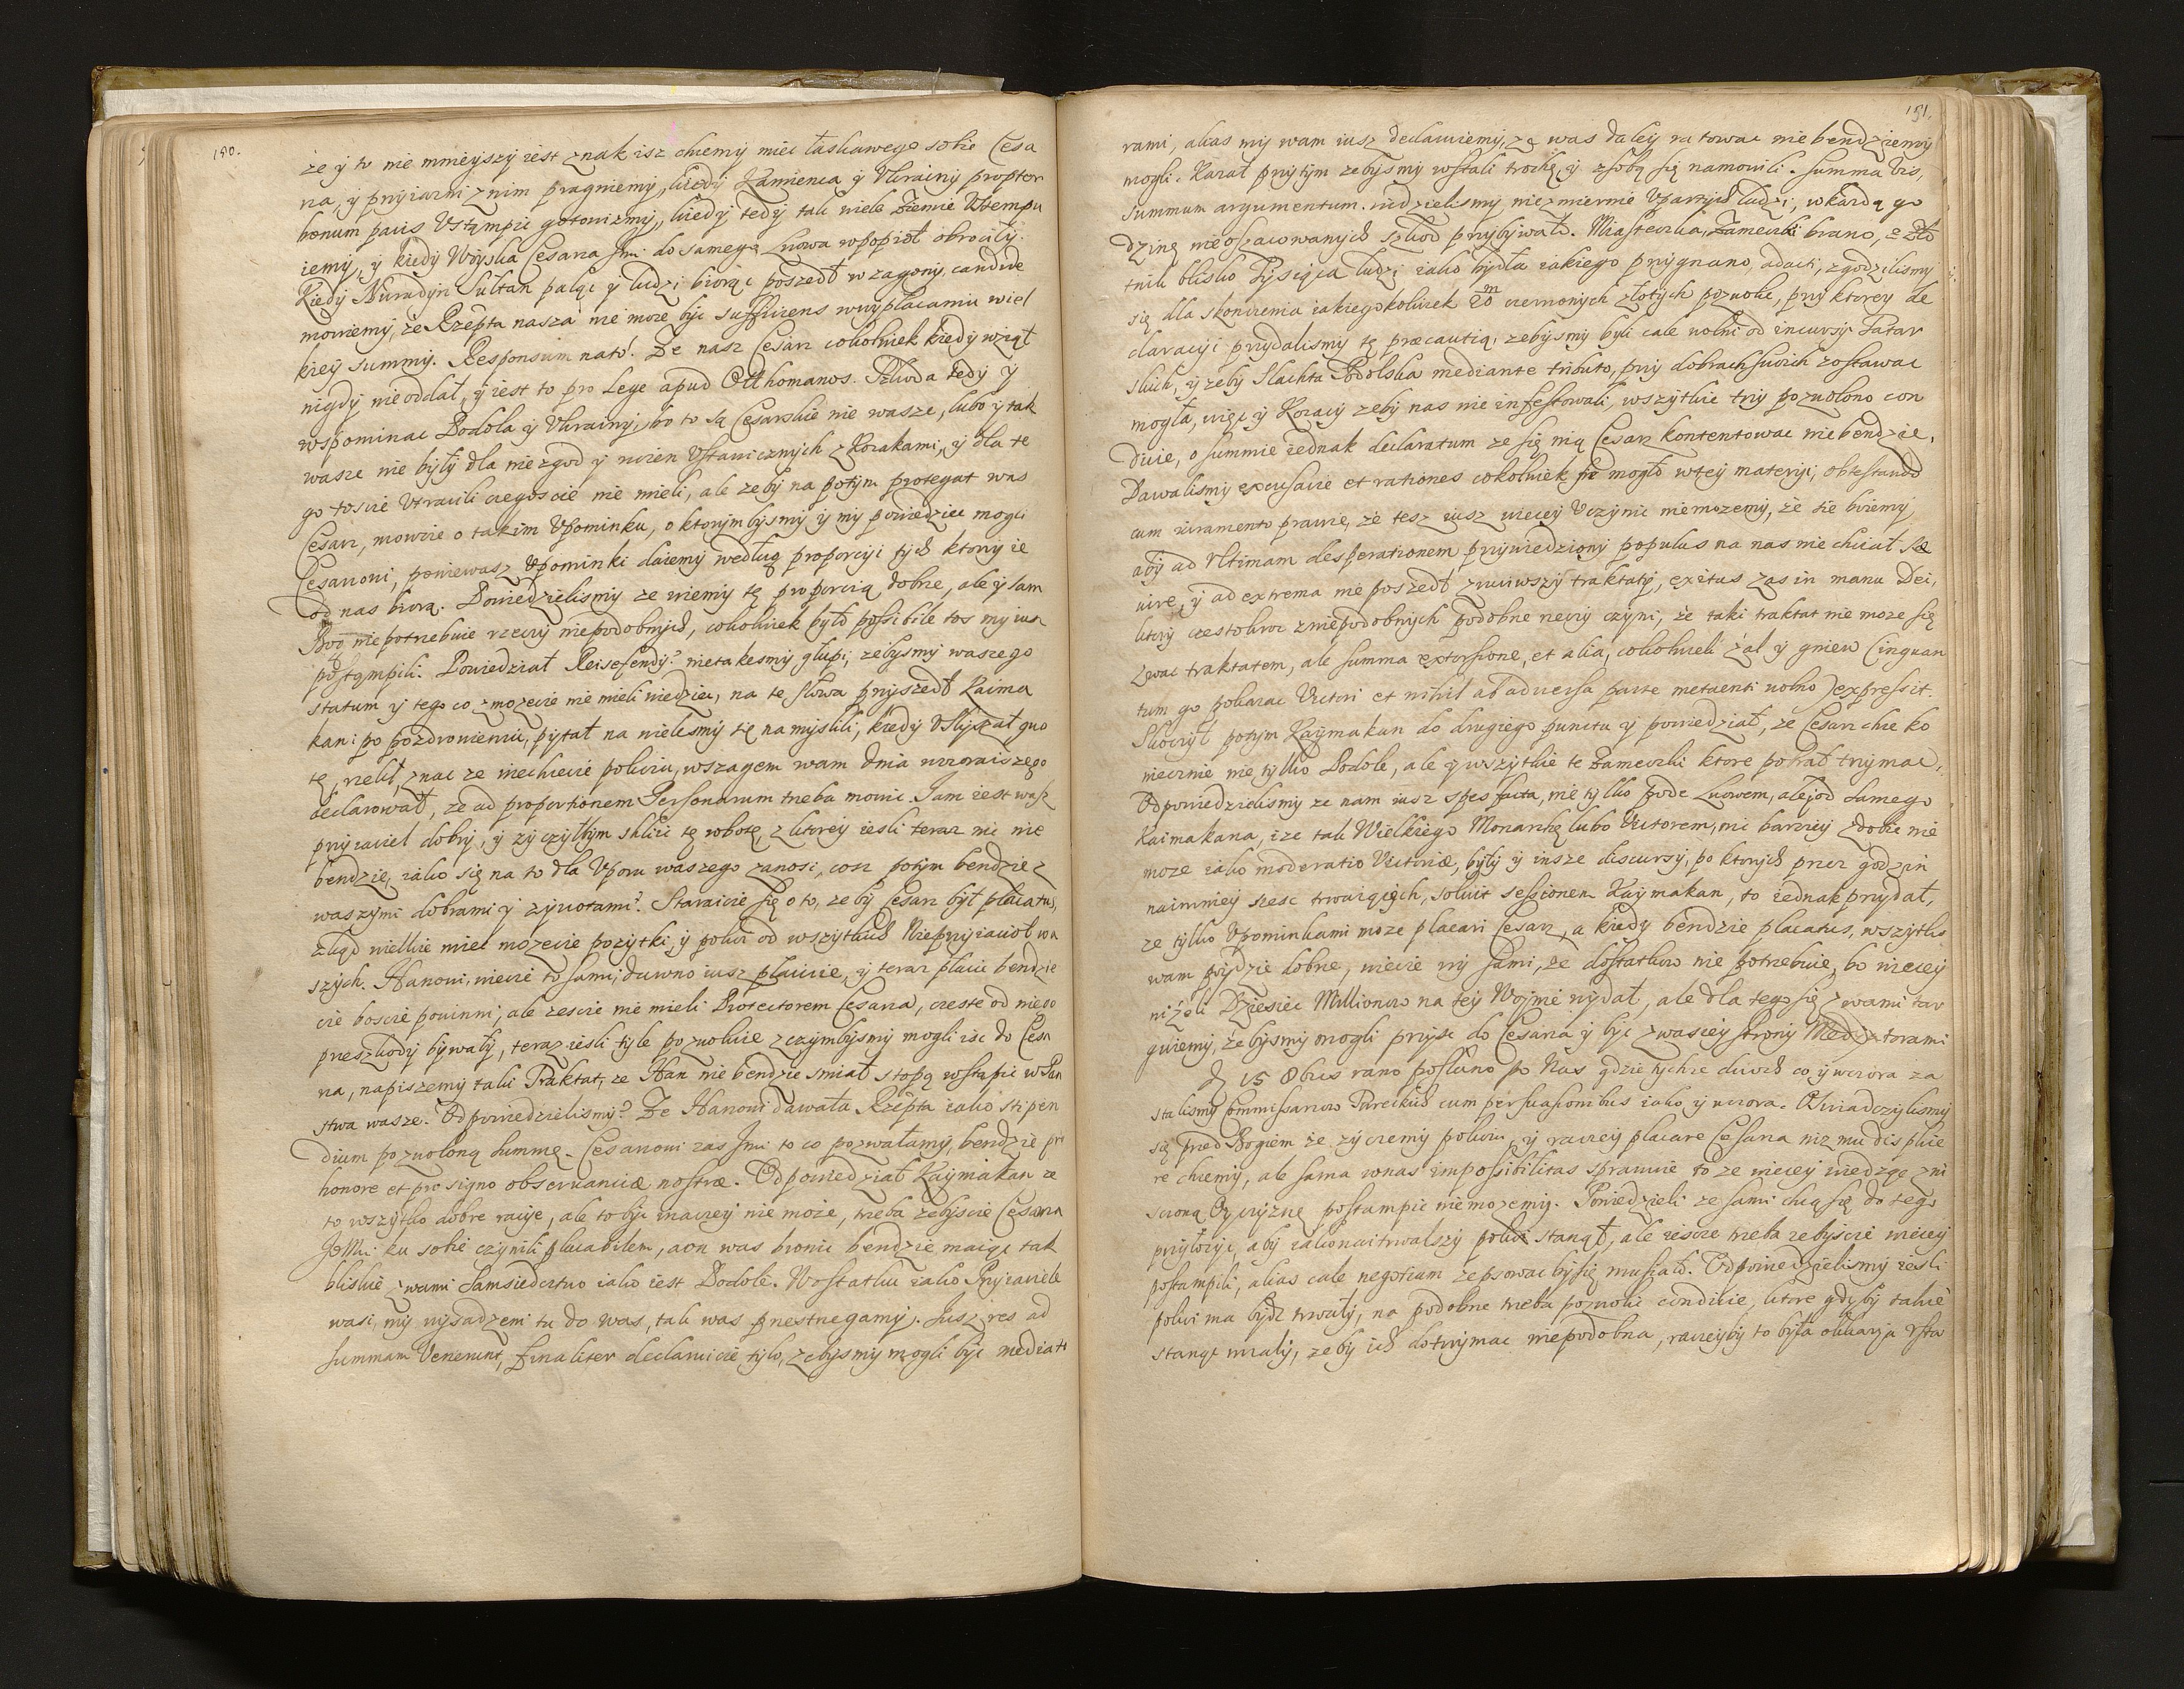 150.
że y to nie mnieyszy iest znak isz chcemy miec łaskawego sobie Cesa
rza, y przyiazni z nim pragniemy, kiedy Kamienca y Ukrainy propter
bonum pacis Ustąmpic gotowizmy, kiedy tedy tak wiele Ziemie Ustempu
iemy, y kiedy Woyska Cesarza Jmi do samego Lwowa w popioł obrociły.
Kiedy Nuradyn Sultan paląc y ludzi biorąc poszedł w zagony, candide
mowiemy, że Rzépta nasza nie moze byc sufficiens w wypłacaniu wiel
kiey summy. Responsum na to. Że nasz Cesarz cokolwiek kiedy wziął
nigdy nie oddał, y iest to pro Lege apud Otthomanos. Szkoda tedy y
wspominac Podola y Ukrainy, bo to są Cesarskie nie wasze, lubo y tak
wasze nie były dla niezgod y woien Ustawicznych z Kozakami, y dla te
go toscie Utracili czegoscie nie mieli, ale zeby na potym protegat was
Cesarz, mowcie o takim Upominku, o ktorymbysmy y my powiedziec mogli
Cesarzowi, poniewasz Upominki daiemy według proporcyi tych ktorzy ie
od nas biorą. Powiedzielismy ze wiemy tę proporcią dobrze, ale y sam
Bog nie potrzebuie rzeczy niepodobnych, cokolwiek było possibile tos my iusz
postąmpili. Powiedział Reisefendy? nietakesmy głupi, zebysmy waszego
statum y tego co zmozecie nie mieli wiedziec, na te słowa przyszedł Kaima
kan: po pozdrowieniu, pytał na wielesmy się namyslili, kiedy Usłyszał quo
tę, rzekł, znac ze niechcecie pokoiu, wszagem wam dnia wczoraiszego
declarował, że ad proportionem Personarum trzeba mowic. Jam iest wasz
przyiaciel dobry, y zyczyłbym skleic tę robotę, z ktorey iesli teraz nic nie
bendzie, iako się na to dla Uporu waszego zanosi, cosz potym bendzie z
waszymi dobrami y zywotami? Staraicie się o to, zeby Cesarz był placatus,
zkąd wielkie miec mozecie pozytki, y pokoi od wszytkich Nieprzyiacioł wa
szych. Hanowi, wiecie to sami, dawno iusz płacicie, y teraz płacic bendzie
cie boscie powinni, ale zescie nie mieli Protectorem Cesarza, czeste od niego
przeszkody bywały, teraz iesli tyle pozwolicie z czymbysmy mogli isc do Cesa
rza, napiszemy taki Traktat, ze Han nie bendzie smiał stopą wstąpic w Pan
stwa wasze. Odpowiedzielismy? Że Hanowi dawała Rzépta iako stipen
dium pozwoloną summę. Cesarzowi zas Jmi to co pozwalamy, bendzie pro
honore et pro signo observantiæ nostræ. Odpowiedział Kaymakan ze
to wszytko dobre racye, ale to byc inaczey nie może, trzeba zebyscie Cesarza
JeMci ku sobie czynili placabilem, a on was bronic bendzie maiąc tak
bliskie z wami Samsiedztwo iako iest Podole. W ostatku iako Przyiaciele
wasi, my wysadzeni tu do was, tak was przestrzegamy. Jusz res ad
summam Venerunt, finaliter declaruicie tylo, zebysmy mogli byc mediato
151.
rami, alias my wam iusz declaruiemy, zę was daley ratowac nie bendziemy
mogli. Kazał przytym zebysmy wstali trochę, y z sobą się namowili. Summa vis,
summum argumentum. widzielismy niezmiernie Upartych ludzi, w kazdą go
dzinę nieoszacowanych szkod przybywało. Miasteczka, Zameczki brano,
tnik blisko Tysiąca ludzi iako bydła iakiego przygnano, adacti, zgodzilismy
się dla skonczenia iakiegokolwiek 20 m czerwonych złotych pozwolic, przy ktorey de
claracyi przydalismy tę præcautią, zebysmy byli cale wolni od incursy Tatar
skich, y zeby Slachta Podolska mediante tributo, przy dobrach swoich zostawac
mogła, więc y Kozacy zeby nas nie infestowali, wszytkie trzy pozwolono con
ditie, o summie iednak declaratum ze się nią Cesarz kontentowac nie bendzie.
Dawalismy excusatie et rationes cokolwiek się mogło w tey materyi, obtestando
cum iuramento prawie, że tesz iusz wiecey Uczynic niemozemy, że się boiemy
aby ad Ultimam desperationem przywiedziony populus na nas nie chciał sæ
vire, y ad extrema nie poszedł zrzuciwszy traktaty, exitus zas in manu Dei,
ktory czestokroc z niepodobnych podobne rzeczy czyni, że taki traktat nie moze się
zwac traktatem, ale summa extorsione, et alia, cokolwieli żal y gniew (inquan
tum go pokazac Victori et nihil ab adversa parte metuenti wolno) expressit.
Skoczył potym Kaymakan do drugiego punctu y powiedział, ze Cesarz chce ko
niecznie nie tylko Podole, ale y wszytkie te Zameczki ktore pobrał trzymac.
Odpowiedzielismy ze nam iusz spes facta, nie tylko pode Lwowem, ale od samego
Kaimakana, ize tak Wielkiego Monarchę lubo Victorem, nic barziey zdobic nie
moze iako moderatio Victoriæ, były y insze discursy, po ktorych przez godzin
naimniey szesc trwaiących, solvit sessionem Kaymakan, to iednak przydał,
ze tylko Upominkami moze placari Cesarz, a kiedy bendzie placatus, wszytko
wam poydzie dobrze, wiecie wy sami, że dostatkow nie potrzebuie, bo wiecey
niżeli Dziesiec Millionow na tey Woynie wydał, ale dla tego się z wami tar
guiemy, że bysmy mogli przyisc do Cesarza y byc z waszey strony Mediatorami
D. 15 8bris rano posłano po Nas gdzie tychze dwoch co y wczora za
stalismy Commissarzow Tureckich cum persuasionibus iako y wczora. Oswiadczylismy
się przed Bogiem że zyczemy pokoiu, y raczey placare Cesarza niz mu displice
re chcemy, ale sama w nas impossibilitas sprawuie to ze wiecey wiedząc zni
sczoną Oyczyznę postampic niemozemy. Powiedzieli ze sami chcą się do tego
przyłozyc, aby iakonaitrwalszy pokoi stanął, ale iescze trzeba zebyscie wiecey
postampili, alias cale negotium zepsowac by się musiało. Odpowiedzielismy iesli
pokoi ma bydz trwały, na podobne trzeba pozwolic conditie, ktore gdyby takie
stanąc miały, zeby ich dotrzymac niepodobna, raczeyby to była okkazja Usta